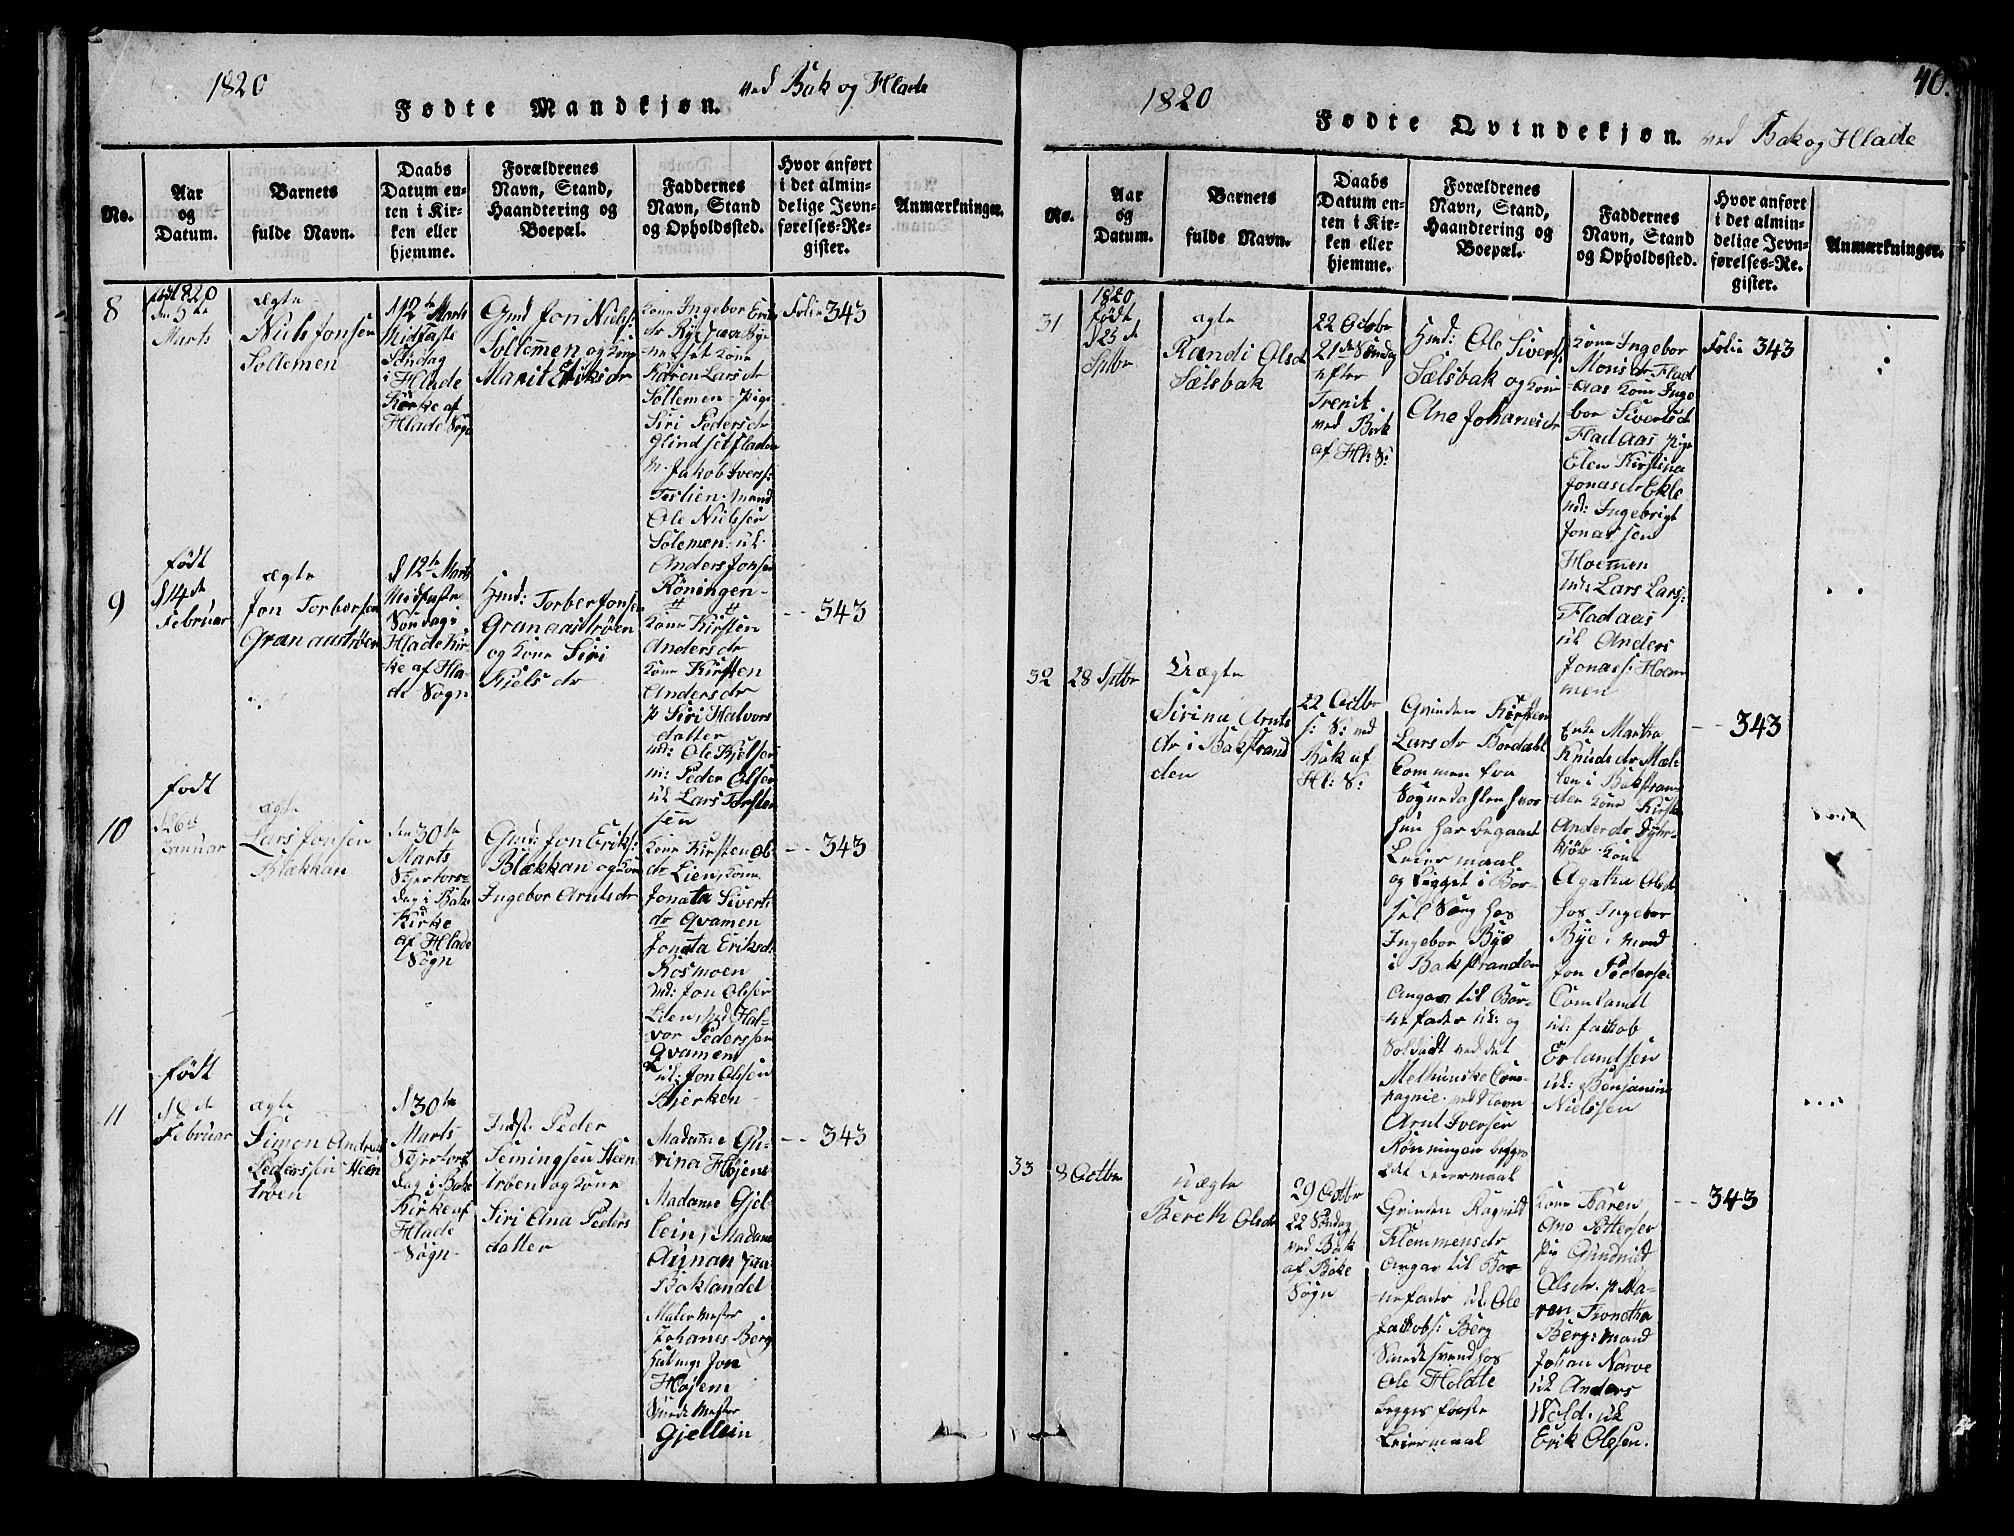 1820
Fødte Mandkjøn.
ved Bak og Hlade
No.
Aar
og
Datum.
Barnets
fulde Navn.
Daabs
Datum en-
ten i Kir-
ken eller
hjemme.
Forældrenes
Navn, Stand,
Haandtering og
Boepæl.
Faddernes
Navn, Stand
og Opholdssted.
Hvor anført
i det almin-
delige Jevn-
førelses-Re-
gister.
Anmærkninger.
8
1820
den 5te
Marts
ægte
Niels Jonsen
Sollemen
d 12te Marts
Midfaste
Søndag
i Hlade
Kirke af
Hlade Sogn
Gmd Jon Niels:
Sollemen og Kone
Marit Eriksdr
Kone Ingebor Eriks
dr
Kone
Karen Larsdr
Sollemen - Pige
Siri Pedersdr
Glindset
m. Jakob Ivers:
Teslien. Mand
Ole Nielssen
Solemen. uk.
Anders Jonsen
Röningen -
Folie 343
9
født
d 14de
Februar
ægte
Jon Torbersen
Granaastrøen
d 12te Marts
Midfaste
Søndag i
Hlade Kir-
ke af Hla-
de Sogn
Hmd: Torber Jonsen
Granaastrøen
og Kone Siri
Kielsdr
Kone Kirsten
Andersdr
Kone Kirsten
Andersdr
p Siri Halvors
datter
md: Ole Kjelsen
m: Peder Olsen
uk Lars Torsten
sen
-- 343
10
født
d 26de
Januar
ægte
Lars Jonsen
Blækkan
den 30te
Marts
Skjertors-
dag i Bake
Kirke
af Hlade
Sogn
Gmd: Jon Eriks:
Blækkan og Kone
Ingebor Arntsdr
Kone Kirsten Ols
dr Lien, Kone
Jonata Siverts
dr Qvamen
Jonata Eriksdr
Rosmoen
md: Jon Olsen
Lien, Md Hal-
vor Pederssen
Qvamen
uk: Jon Olsen
Bjerken -
-- 343
11
født
d 8de
Februar
ægte
Simon Andreas
Pederssen Steen
trøen
d 30te
Marts
Skjertors
dag i Bake
Kirke af
Hlade
Sogn
Indst: Peder
Femingsen Steen-
trøen og Kone
Siri Ana Peders
datter
Madame Gu-
rina Højem
Madame Gjel-
lein, Madame
Aunan fra
Baklandet
Maler Mester
Johanes Berg
Jon
Højem
Smede Mester
Gjellein
-- 343
1820
Fødte Qvindekjøn.
ved Bak og Hlade
40.
No.
Aar
og
Datum.
Barnets
fulde Navn.
Daabs
Datum en-
ten i Kir-
ken eller
hjemme.
Forældrenes
Navn, Stand,
Haandtering og
Boepæl.
Faddernes
Navn, Stand
og Opholdssted.
Hvor anført
i det almin-
delige Jevn-
førelses-Re-
gister.
Anmærkninger.
31
1820
født
d 25de
Sptbr
ægte
Randi Olsdr
Sælsbak
22 Octbr
21de Søndag
efter
Trenit.
ved Bak
af Hl: S:
Hmd: Ole Siverts
Sælsbak og Kone
Ane Johanesdr
Kone Ingebor
Monsdr Flad
aas Kone Inge
bor Sivertsdr
Fladaas Pige
Elen Kirstina
Jonasdr Ekle
md: Ingebrigt
Jonassen
Hoemen
md: Lars Lars:
Fladaas
uk Anders
Jonas: Hoem
men
Folie 343
32
28 Sptbr
Uægte
Sirina Arnts
dr i Bakstrand
den
22 Octbr
f: S: ved
Bak af
Hl: S:
Qvinden Kirsten
Larsdr Bordahl
Kommen fra
Sognedahlen hvor
hun har begaaet
Leiermaal
og ligget i Bar-
sel Seng hos
Ingebor Bye
i Bakstranden
Angav til Bar-
nefader uk: og
Soldadt ved det
Melhuuske Com-
pagnie ved Navn
Arnt Iversen
Rønningen begges
1de Leiermaal
Enke Martha
Knudsdr Mæl-
len i Bakstran
den Kone Kirsten
Andersdr Dyhr-
kiøb Kone
Agatha Olsdr
hos Ingebor
Bye i Mand
Jon Pedersen
uk: Jakob
Erlandsen
uk: Benjamin
Nielssen
-- 343
33
8 Octbr
Uægte
Bereth Olsdr
29 Octbr
22 Søndag
ved Bak
af Bake
Sogn
Qvinden Ragnild
Klemmensdr
Angav til Bar
nefader uk: Ole
Jakobs: Berg
Smedesvend hos
Ole Holdte
begges første
Leiermaal
Kone Karen
Ane Pettersen
pig Gundnild
Olsdr. p Ma-
ren Tronetha
Berg: Mand
Johan Narve
uk Anders
Wold. uk
Erik Olesen.
-- 343